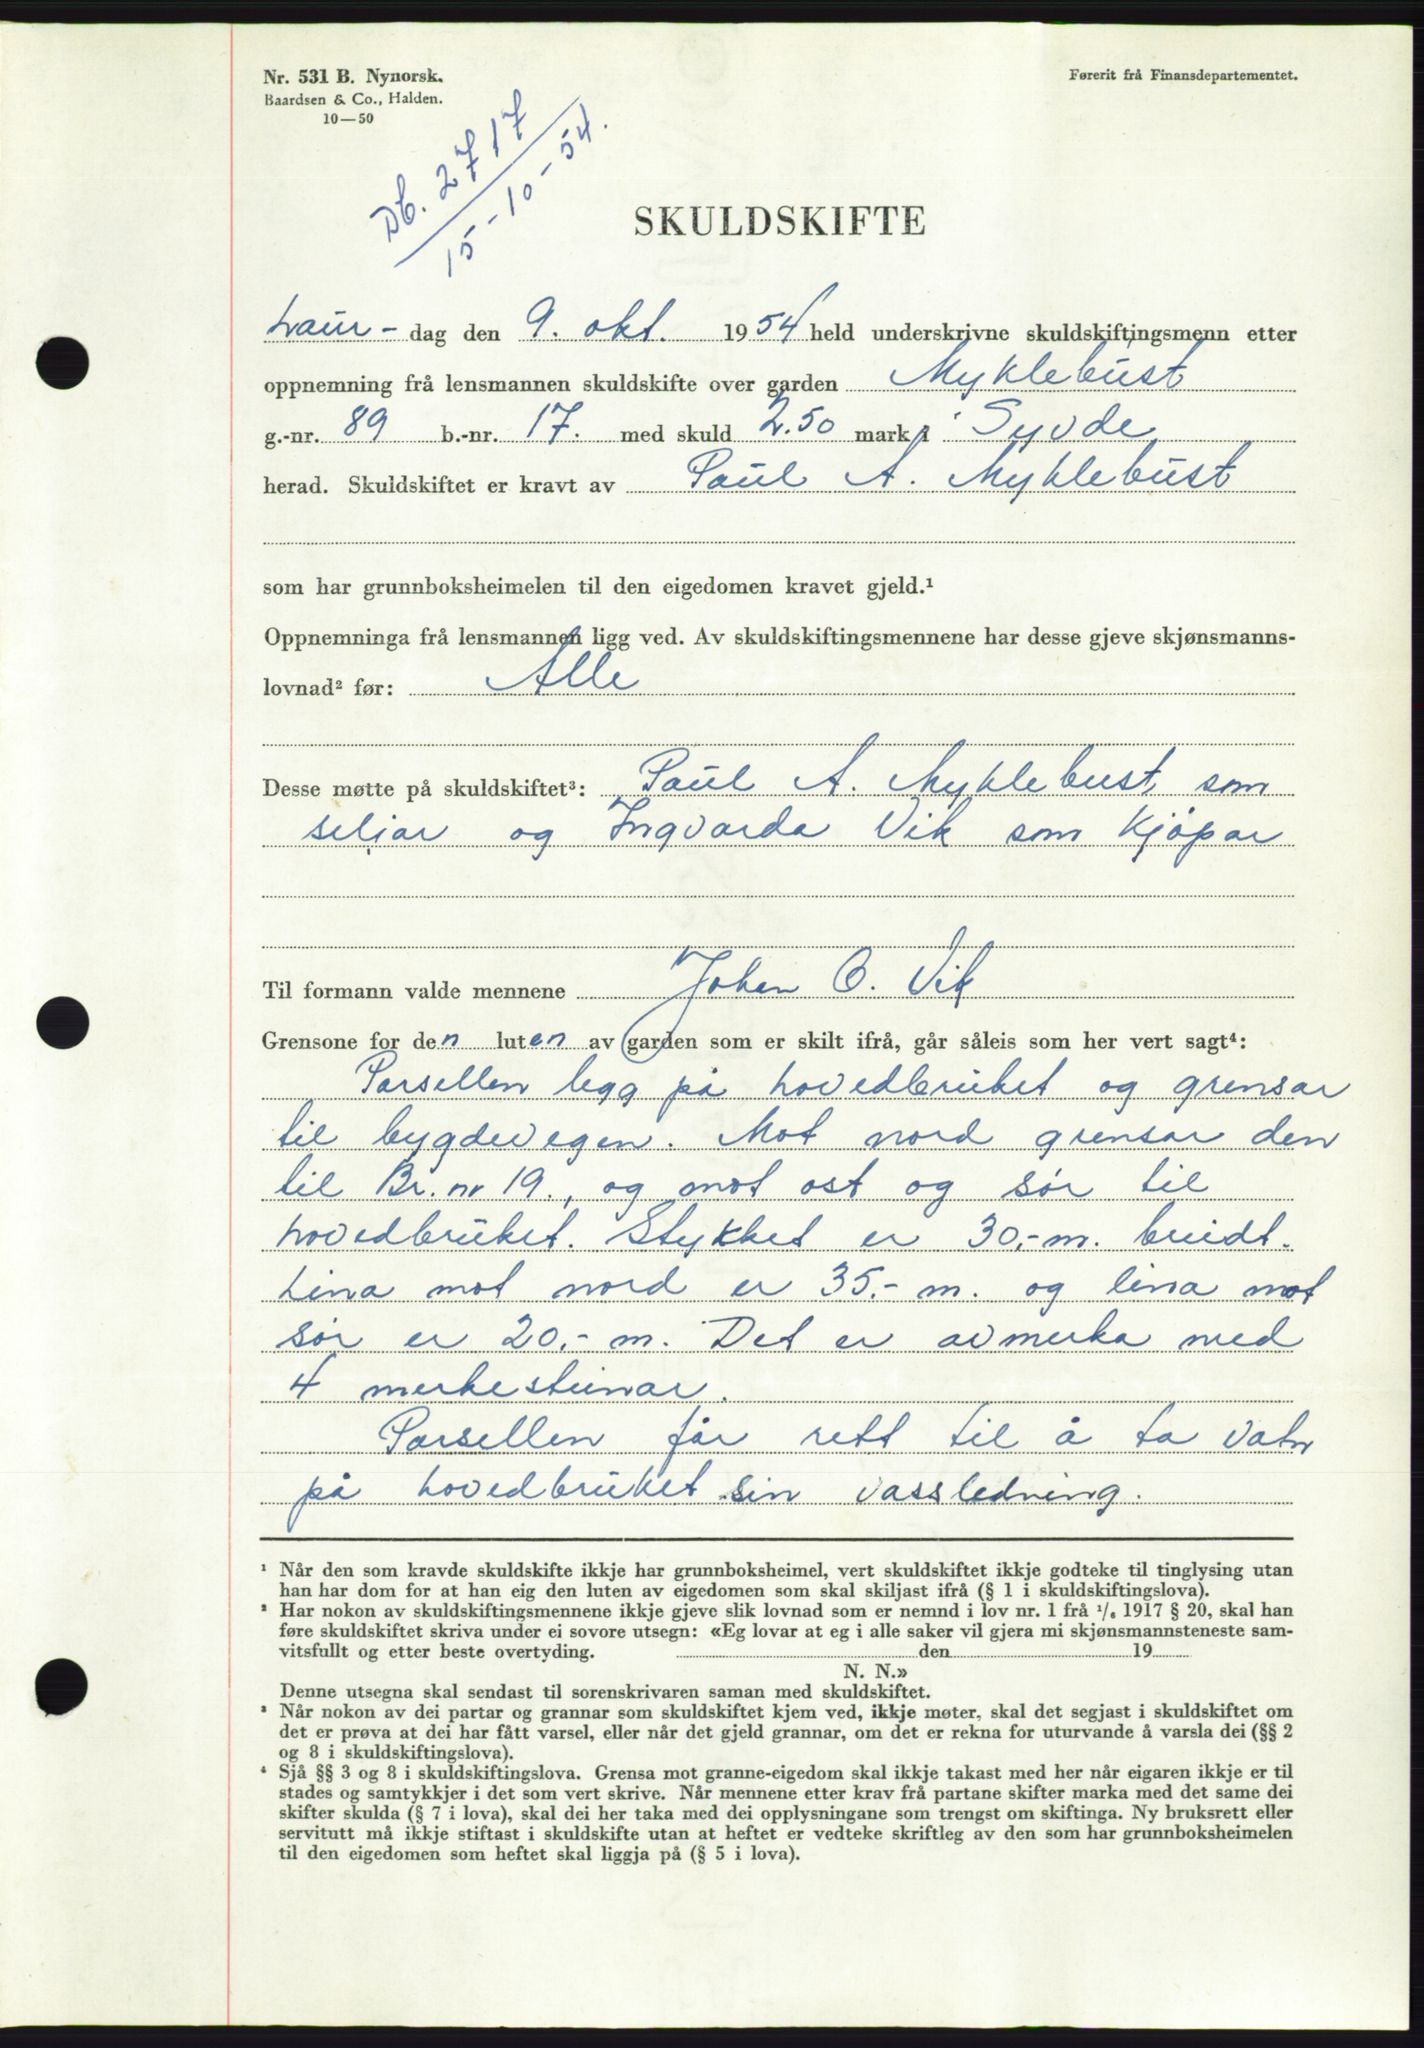 Nr. 531 B. Nynorsk.
Baardsen & Co., Halden.
10—50
Førerit frå Finansdepartementet.
Db. 2717
15-10-54.
SKULDSKIFTE
Laur- dag den 9. okt. 1954 held underskrivne skuldskiftingsmenn etter
oppnemning frå lensmannen skuldskifte over garden Myklebust
g.-nr. 89 b.-nr. 17. med skuld 2.50 mark i Syvde
herad. Skuldskiftet er kravt av Paul A. Myklebust
som har grunnboksheimelen til den eigedomen kravet gjeld.¹
Oppnemninga frå lensmannen ligg ved. Av skuldskiftingsmennene har desse gjeve skjønsmanns-
lovnad² før: Alle
Desse møtte på skuldskiftet³: Paul A. Myklebust, som
seljar og Ingvarda Vik som kjøpar
Til formann valde mennene Johan O. Vik
Grensone for den luten av garden som er skilt ifrå, går såleis som her vert sagt⁴:
Parsellen legg på hovedbruket og grensar
til bygdevegen. Mot nord grensar den
til Br. nr 19., og mot ost og sør til
hovedbruket. Stykket er 30,-m. breidt.
Lina mot nord er 35.- m. og lina mot
sør er 20,- m. Det er avmerka med
4 merkesteinar.
Parsellen får rett til å ta vatn
på hovedbruket sin vassledning.
¹ Når den som kravde skuldskifte ikkje har grunnboksheimel, vert skuldskiftet ikkje godteke til tinglysing utan
han har dom for at han eig den luten av eigedomen som skal skiljast ifrå (§ 1 i skuldskiftingslova).
² Har nokon av skuldskiftingsmennene ikkje gjeve slik lovnad som er nemnd i lov nr. 1 frå ¹/₆ 1917 § 20, skal han
føre skuldskiftet skriva under ei sovore utsegn: «Eg lovar at eg i alle saker vil gjera mi skjønsmannsteneste sam-
vitsfullt og etter beste overtyding. den 19
N. N.»
Denne utsegna skal sendast til sorenskrivaren saman med skuldskiftet.
³ Når nokon av dei partar og grannar som skuldskiftet kjem ved, ikkje møter, skal det segjast i skuldskiftet om
det er prøva at dei har fått varsel, eller når det gjeld grannar, om det er rekna for uturvande å varsla dei (§§ 2
og 8 i skuldskiftingslova).
⁴ Sjå §§ 3 og 8 i skuldskiftingslova. Grensa mot granne-eigedom skal ikkje takast med her når eigaren ikkje er til
stades og samtykkjer i det som vert skrive. Når mennene etter krav frå partane skifter marka med det same dei
skifter skulda (§ 7 i lova), skal dei her taka med dei opplysningane som trengst om skiftinga. Ny bruksrett eller
servitutt må ikkje stiftast i skuldskifte utan at heftet er vedteke skriftleg av den som har grunnboksheimelen
til den eigedomen som heftet skal liggja på (§ 5 i lova).